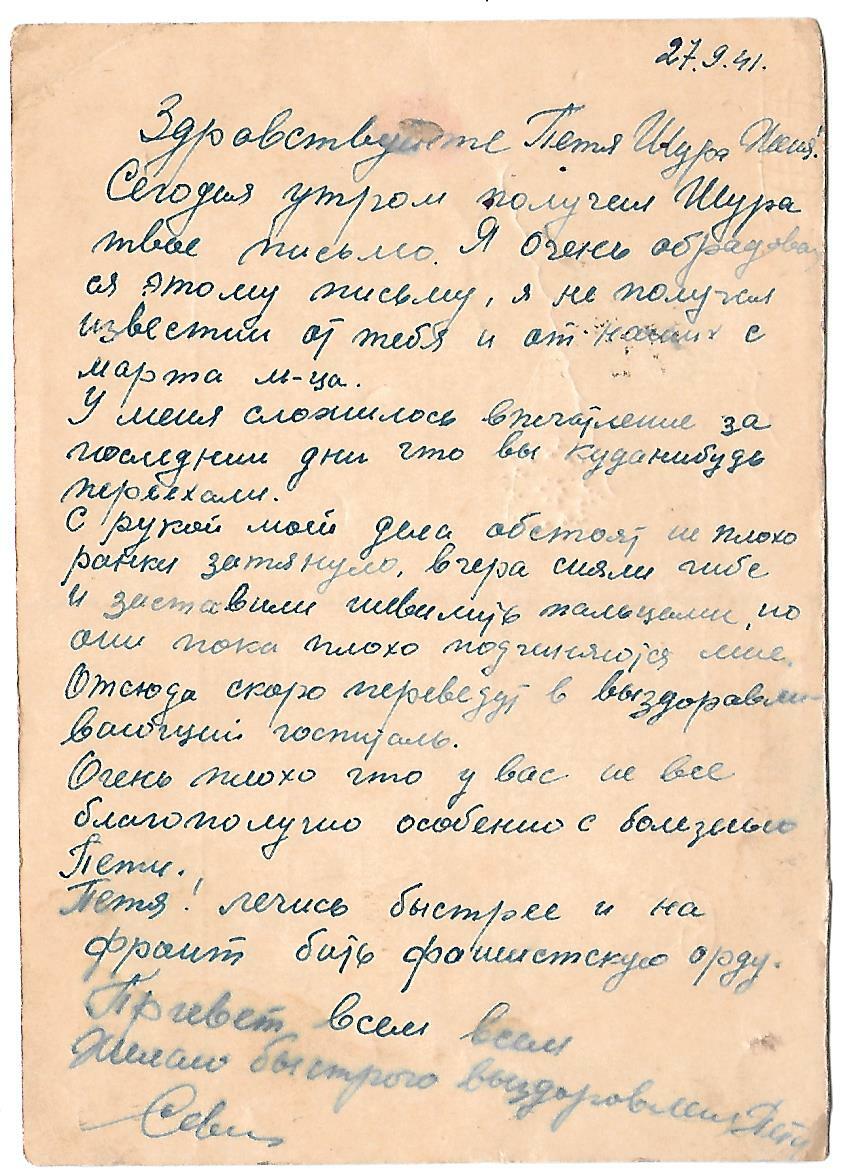 27.9.41.
Здравствуйте Петя Шура Женя!
Сегодня утром получил Шура
твое письмо. Я очень обрадовал
ся этому письму, я не получал
известии от тебя и от наших с
марта м-ца.
У меня сложилось впечатление за
последнии дни что вы куданибудь
переехали.
С рукой моей дела обстоят не плохо
ранки затянуло, вчера сняли гибс
и заставили шевилить пальцами, но
они пока плохо подчиняются мне.
Отсюда скоро переведут в выздоравли-
вающий госпиталь.
Очень плохо что у вас не все
благополучно особенно с болезнью
Пети.
Петя! лечись быстрее и на
фронт бить фашистскую орду.
Привет всем всем
Желаю быстрого выздоровления Пети